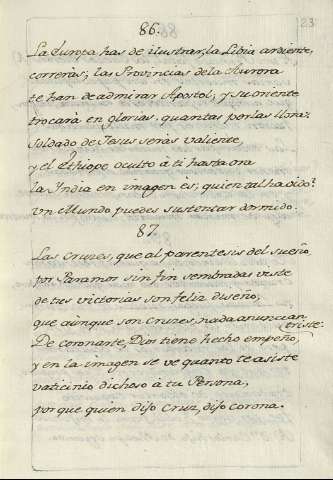 23
86.
La Europa has de ilustrar, la Libia ardiente,
correràs; las Provincias de la Aurora
te han de admirar Apostol, y su oriente
trocarà en glorias, quantas perlas llora:
Soldado de Jesus seràs valiente,
y el Ethiope oculto à ti hasta ora
la India en imagen es; quien tal ha oido?
Un Mundo puedes sustentar dormido.
87.
Las Cruzes, que al parentesis del sueño,
por Paramos sin fin sembradas viste
de tus victorias son feliz diseño,
que aùnque son cruzes, nada anuncian triste:
De coronarte, Dios tiene hecho empeño,
y en la imagen se ve quanto te asiste
vaticinio dichoso à tu Persona,
porque quien dijo Cruz, dijo corona.